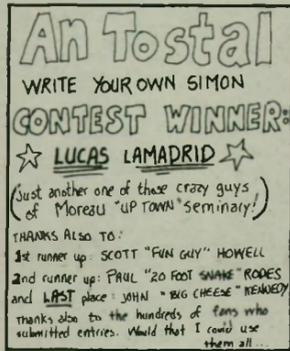 An Tostal
WRITE YOUR OWN SIMON
CONTEST WINNER:
LUCAS LAMADRID
(just another one of those crazy guys
of Moreau "UP TOWN" Seminary!)
THANKS ALSO TO:
1st runner up: SCOTT "FUN GUY" HOWELL
2nd runner up: PAUL "20 FOOT SNAKE" RODES
and LAST place: JOHN "BIG CHEESE" KENNEDY
Thanks also to the hundreds of fans who
submitted entries. Would that I could use
them all...